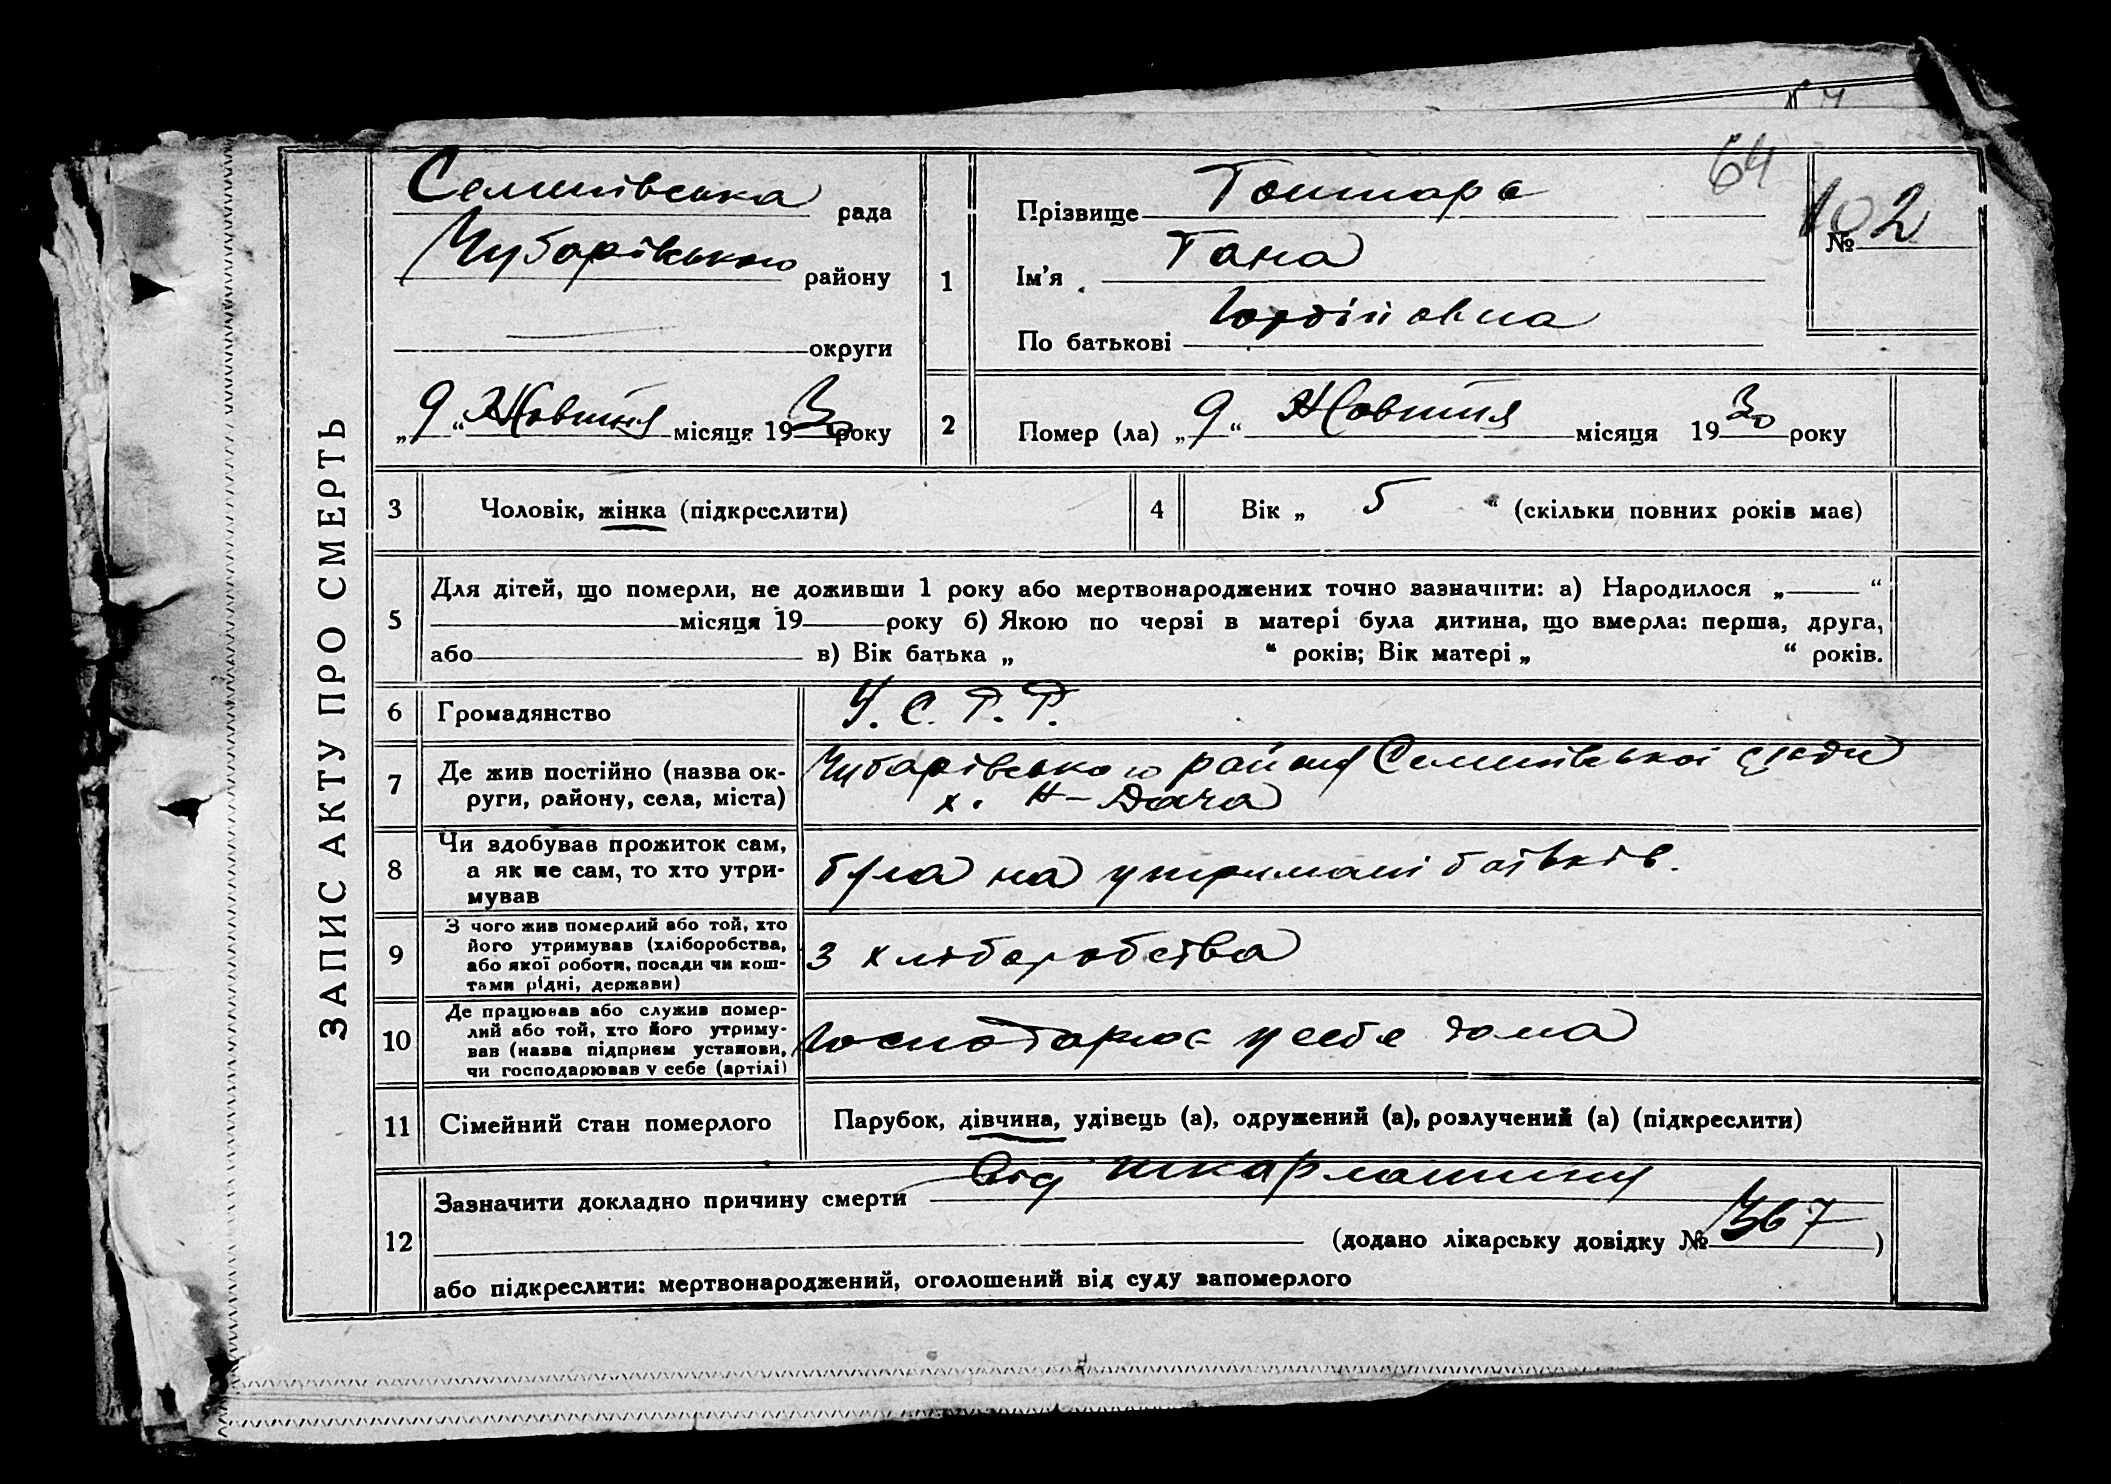 ЗАПИС АКТУ ПРО СМЕРТЬ
64
Семенівська рада
Чубарівського району
округи
„9“ Жовтня місяця 1930 року
1
Прізвище
Ім'я Гана
По батькові Гордіївна
№ 102
2
Помер (ла) „9“ Жовтня місяця 1930 року
3
Чоловік, жінка (підкреслити)
4
Вік „ 5 “ (скільки повних років має)
5
Для дітей, що померли, не доживши 1 року або мертвонароджених точно зазначити: а) Народилося „ “
місяця 19 року б) Якою по черзі в матері була дитина, що вмерла: перша, друга,
або в) Вік батька „ “ років; Вік матері „ “ років.
6
Громадянство
У.С.Р.Р.
7
Де жив постійно (назва ок-
руги, району, села, міста)
Чубарівського району Семенівської ради
х. Н-Дача
8
Чи здобував прожиток сам,
а як не сам, то хто утри-
мував
була на утримані батьків.
9
З чого жив померлий або той, хто
його утримував (хліборобства,
або якої роботи, посади чи кош-
тами рідні, держави)
з хліборобства
10
Де працював або служив помер-
лий або той, хто його утриму-
вав (назва підприєм установи,
чи господарював у себе (артілі)
Господарює у себе дома
11
Сімейний стан померлого
Парубок, дівчина, удівець (а), одружений (а), розлучений (а) (підкреслити)
12
Зазначити докладно причину смерти Від шкарлатини
(додано лікарську довідку № 367)
або підкреслити: мертвонароджений, оголошений від суду запомерлого